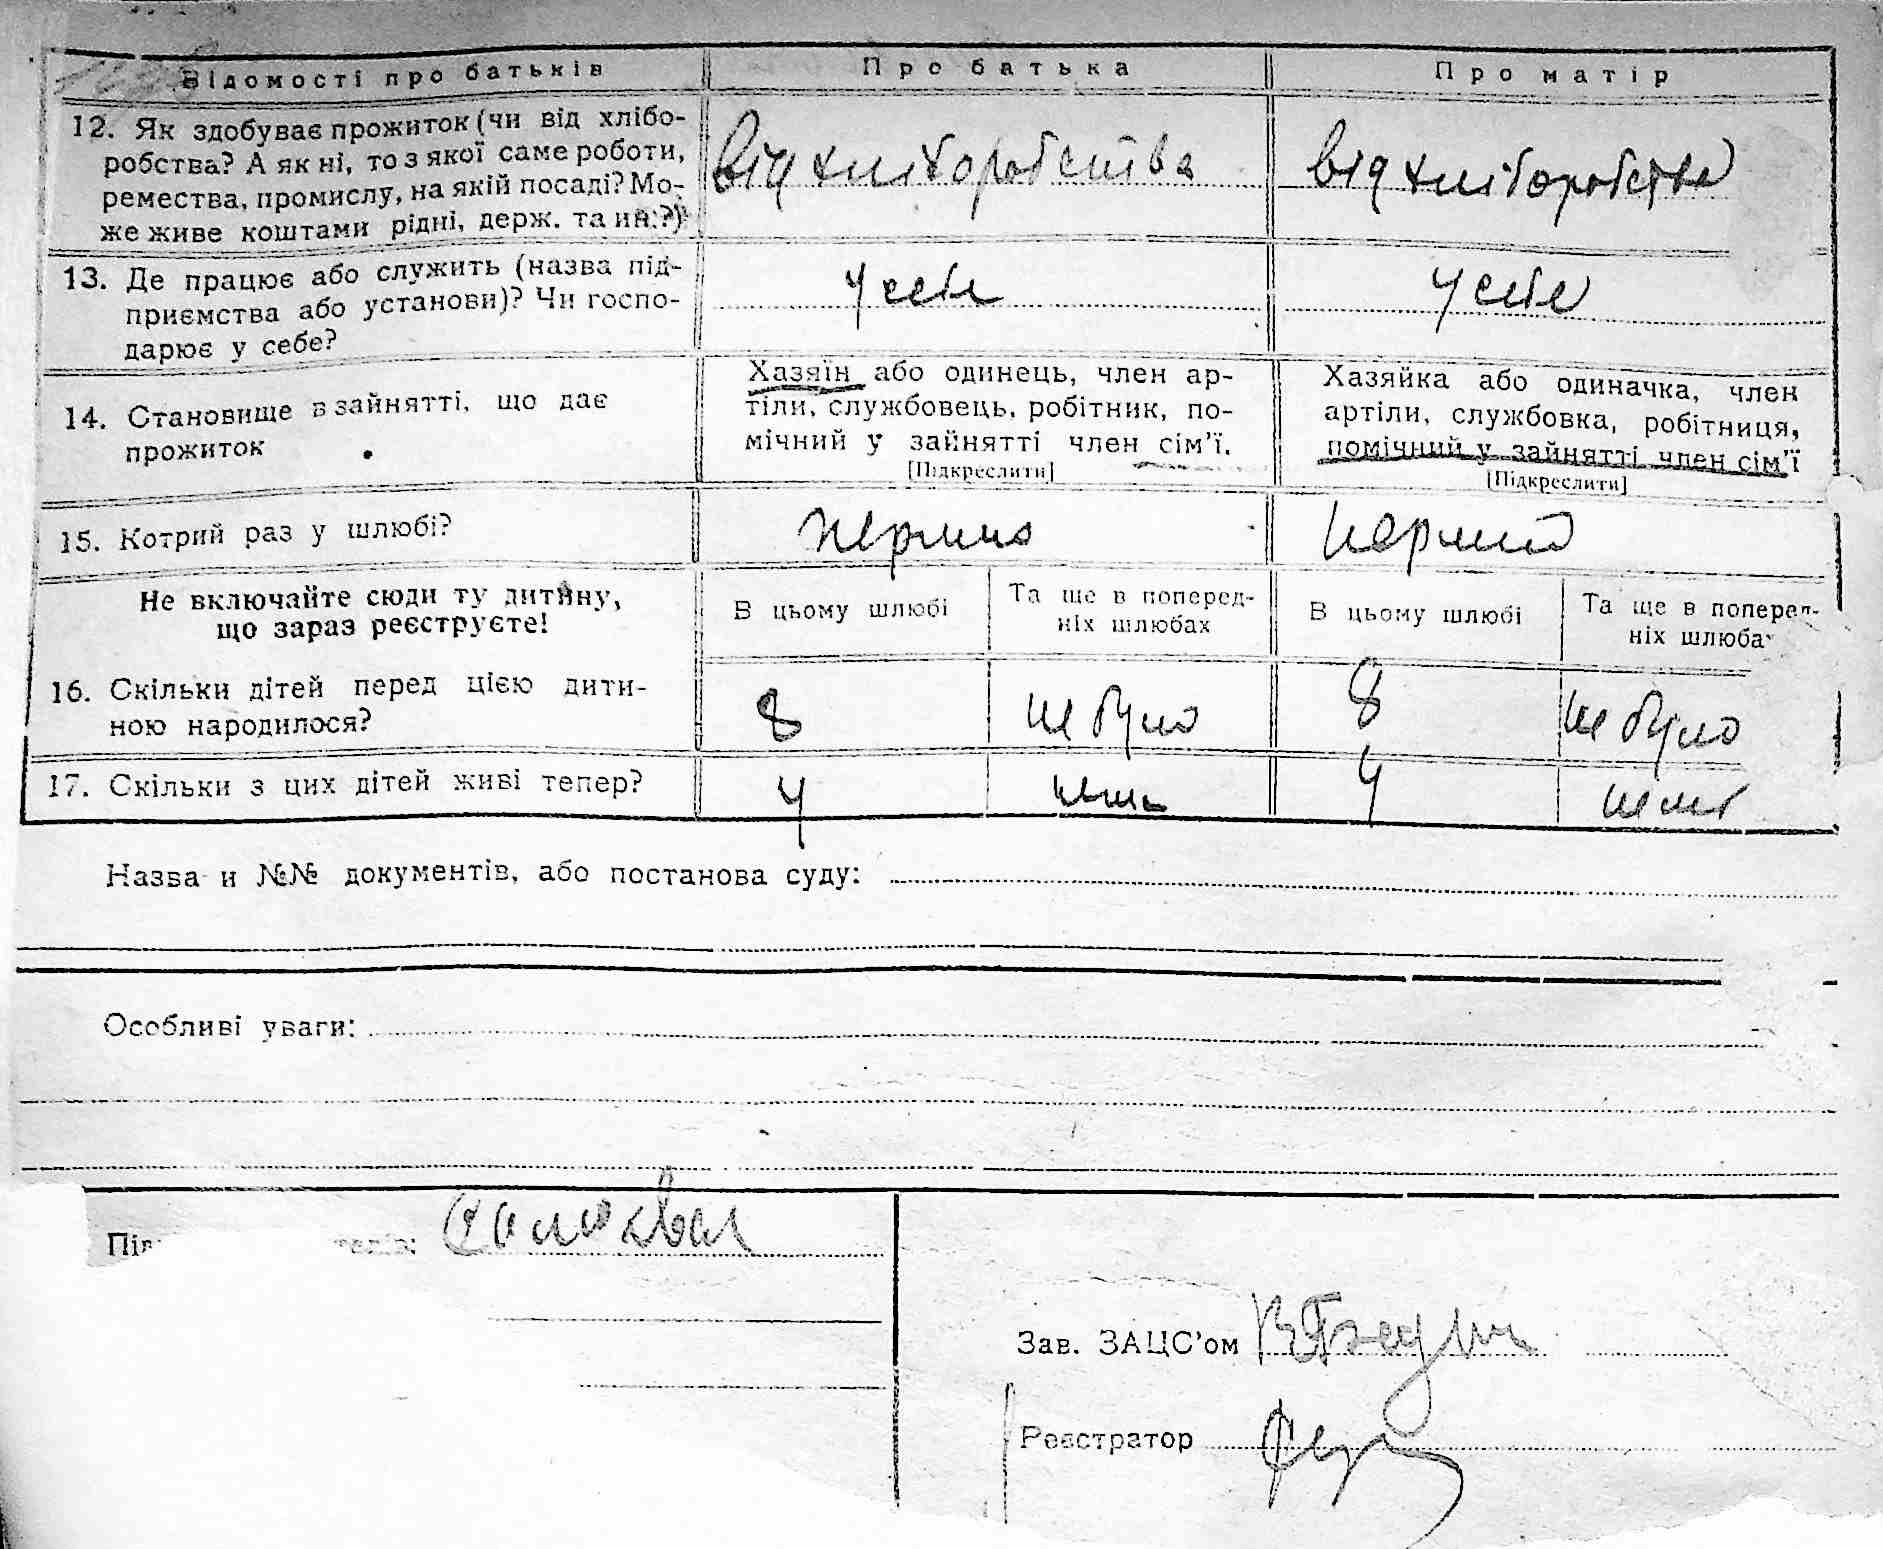 Відомості про батьків
Про батька
Про матір
12. Як здобуває прожиток (чи від хлібо-
робства? А як ні, то з якої саме роботи,
ремества, промислу, на якій посаді? Мо-
же живе коштами рідні, держ. та ин.?)
від хліборобства
від хліборобства
13. Де працює або служить (назва під-
приємства або установи)? Чи госпо-
дарює у себе?
у себе
у себе
14. Становище в зайнятті, що дає
прожиток
Хазяїн або одинець, член ар-
тіли, службовець, робітник, по-
мічний у зайнятті член сім'ї.
[Підкреслити]
Хазяйка або одиначка, член
артіли, службовка, робітниця,
помічний у зайнятті член сім'ї
[Підкреслити]
15. Котрий раз у шлюбі?
перший
Не включайте сюди ту дитину,
що зараз реєструєте!
В цьому шлюбі
Та ще в поперед-
ніх шлюбах
В цьому шлюбі
Та ще в поперед-
ніх шлюба
16. Скільки дітей перед цією дити-
ною народилося?
8
не було
8
не було
17. Скільки з цих дітей живі тепер?
4
4
Назва и №№ документів, або постанова суду:
Особливі уваги:
Зав. ЗАЦС'ом
Реєстратор